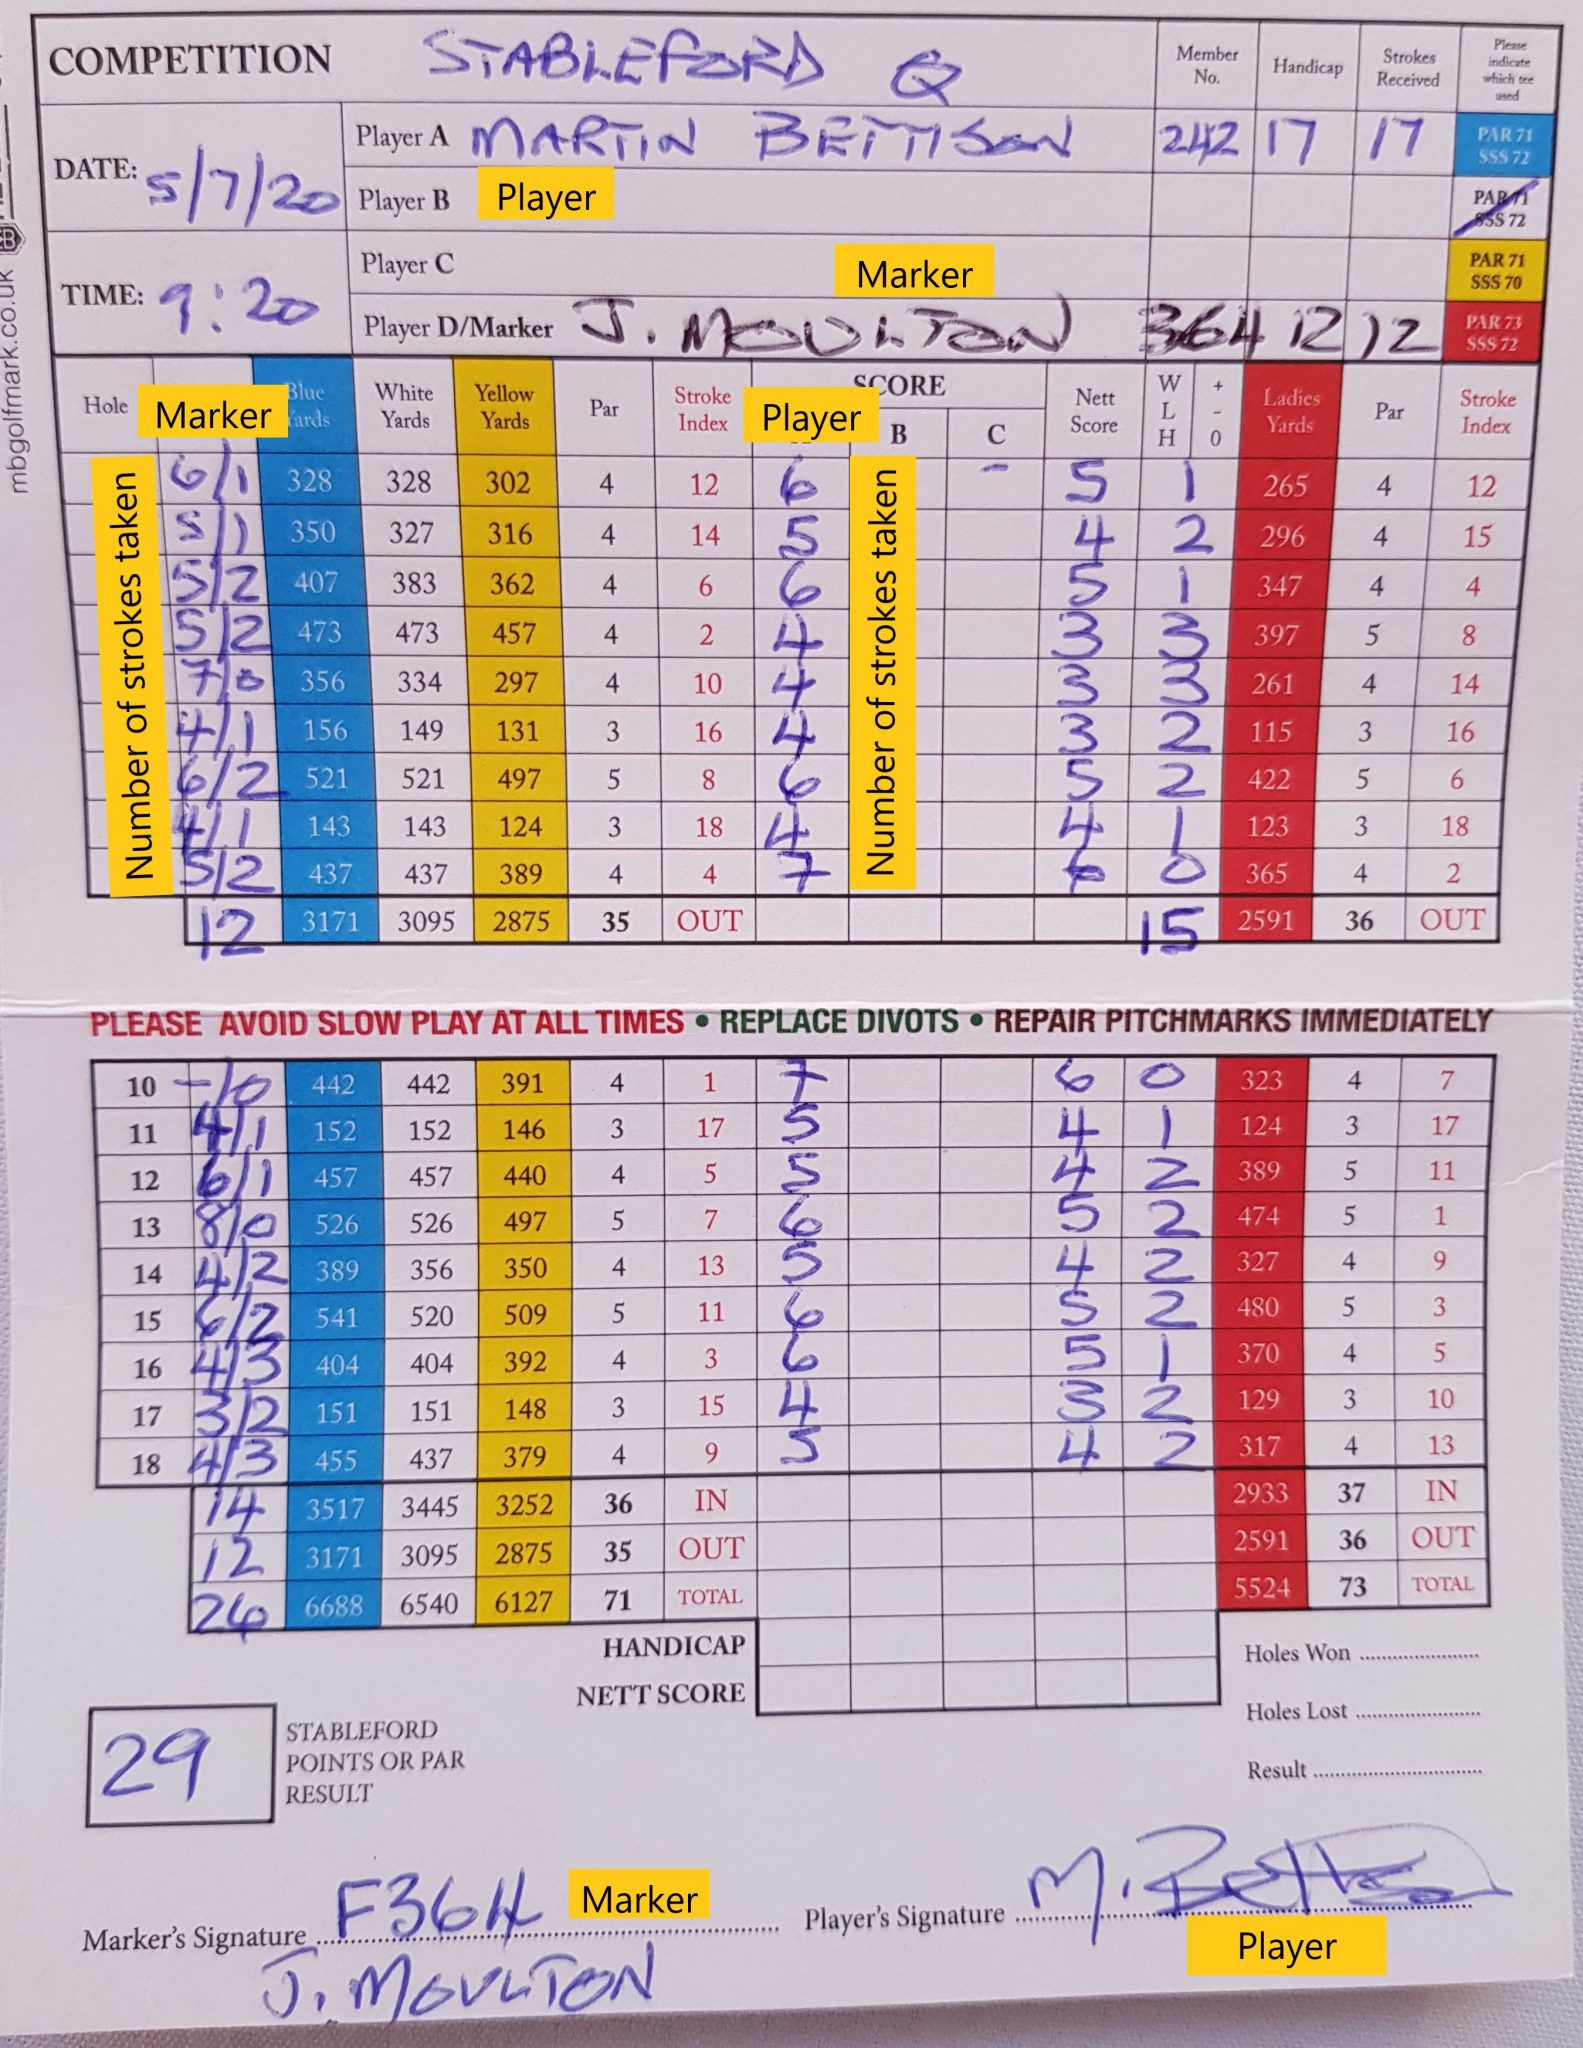 COMPETITION STABLEFORD Q Member No. Handicap Strokes Received Please indicate which tee used
DATE: 5/7/20 Player A MARTIN BETTISON 242 17 17 PAR 71 SSS 72
Player B Player PAR 71 SSS 72
TIME: 9:20 Player C Marker PAR 71 SSS 70
Player D/Marker J. MOULTON 364 12 12 PAR 73 SSS 72
mbgolfmark.co.uk
Hole Marker Blue Yards White Yards Yellow Yards Par Stroke Index SCORE Player B C Nett Score W L H + - 0 Ladies Yards Par Stroke Index
Number of strokes taken
Number of strokes taken
6/1 328 328 302 4 12 6 - 5 1 265 4 12
5/1 350 327 316 4 14 5 4 2 296 4 15
5/2 407 383 362 4 6 6 5 1 347 4 4
5/2 473 473 457 4 2 4 3 3 397 5 8
7/0 356 334 297 4 10 4 3 3 261 4 14
4/1 156 149 131 3 16 4 3 2 115 3 16
6/2 521 521 497 5 8 6 5 2 422 5 6
4/1 143 143 124 3 18 4 4 1 123 3 18
5/2 437 437 389 4 4 7 6 0 365 4 2
12 3171 3095 2875 35 OUT 15 2591 36 OUT
PLEASE AVOID SLOW PLAY AT ALL TIMES • REPLACE DIVOTS • REPAIR PITCHMARKS IMMEDIATELY
10 -/0 442 442 391 4 1 7 6 0 323 4 7
11 4/1 152 152 146 3 17 5 4 1 124 3 17
12 6/1 457 457 440 4 5 5 4 2 389 5 11
13 8/0 526 526 497 5 7 6 5 2 474 5 1
14 4/2 389 356 350 4 13 5 4 2 327 4 9
15 6/2 541 520 509 5 11 6 5 2 480 5 3
16 4/3 404 404 392 4 3 6 5 1 370 4 5
17 3/2 151 151 148 3 15 4 3 2 129 3 10
18 4/3 455 437 379 4 9 5 4 2 317 4 13
14 3517 3445 3252 36 IN 2933 37 IN
12 3171 3095 2875 35 OUT 2591 36 OUT
26 6688 6540 6127 71 TOTAL 5524 73 TOTAL
HANDICAP Holes Won
NETT SCORE Holes Lost
29 STABLEFORD POINTS OR PAR RESULT Result
Marker's Signature F364 Marker Player's Signature M. Bettison
J. MOULTON Player